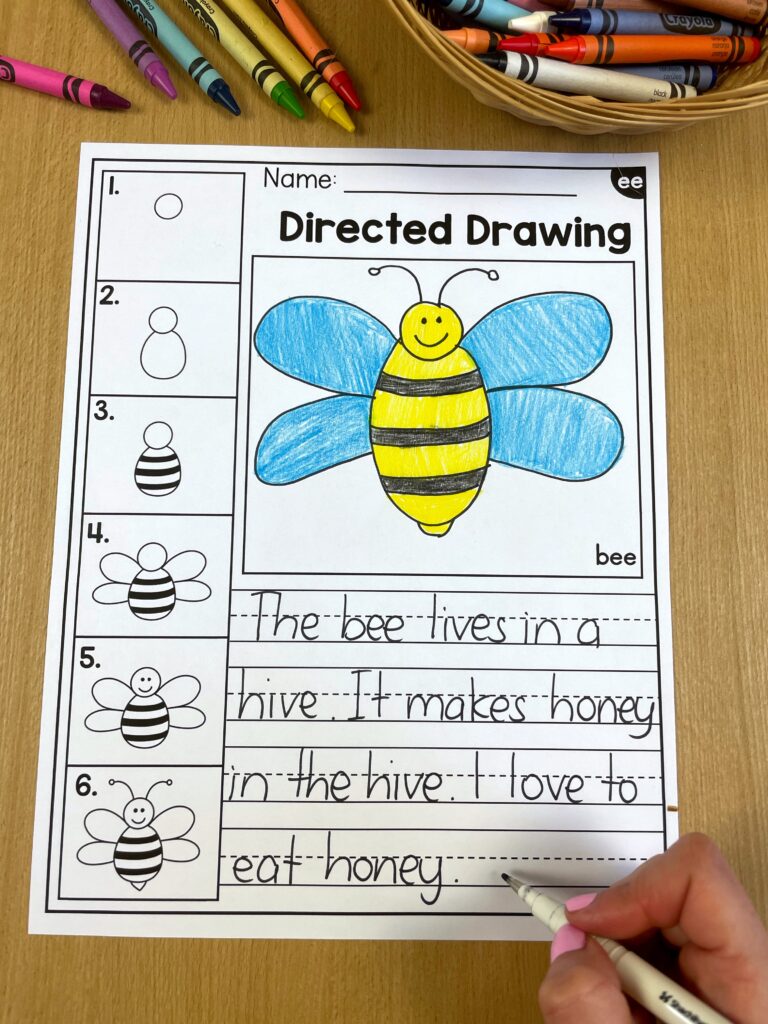 Crayola
black
1.
Name:
ee
Directed Drawing
2.
3.
4.
5.
6.
bee
The bee lives in a
hive. It makes honey
in the hive. I love to
eat honey.